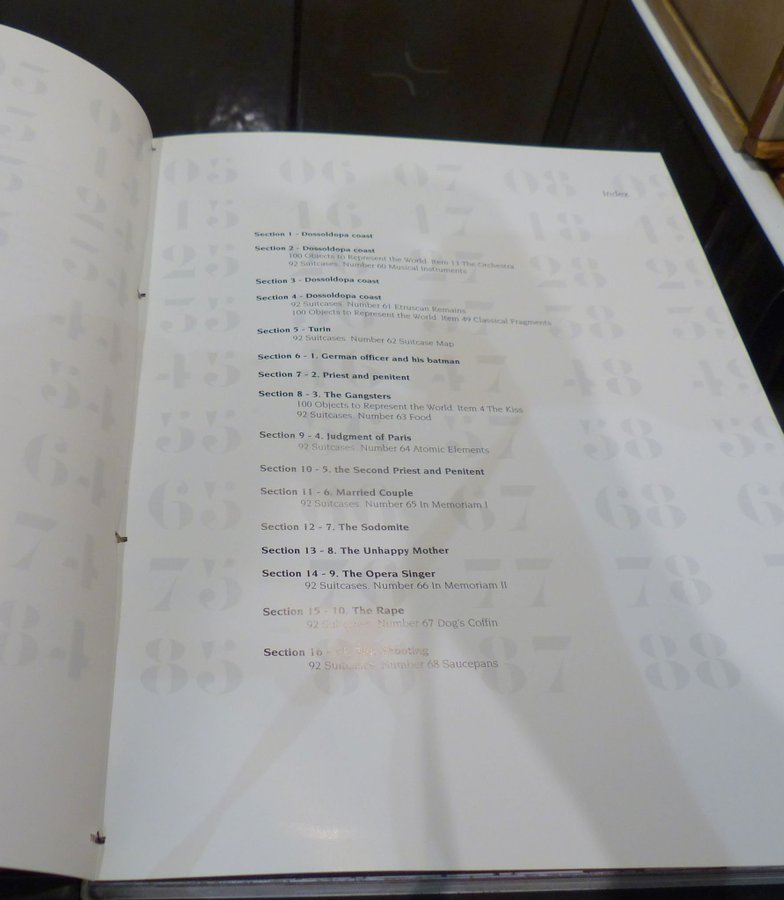 Index
05 06 07 08
15 16 17 18
Section 1 - Dossoldopa coast
Section 2 - Dossoldopa coast
100 Objects to Represent the World. Item 13 The Orchestra
92 Suitcases. Number 60 Musical Instruments
25 27 28 29
Section 3 - Dossoldopa coast
Section 4 - Dossoldopa coast
92 Suitcases. Number 61 Etruscan Remains
100 Objects to Represent the World. Item 49 Classical Fragments
Section 5 - Turin
92 Suitcases. Number 62 Suitcase Map
Section 6 - 1. German officer and his batman
45 47 48
Section 7 - 2. Priest and penitent
Section 8 - 3. The Gangsters
100 Objects to Represent the World. Item 4 The Kiss
92 Suitcases. Number 63 Food
55 58
Section 9 - 4. Judgment of Paris
92 Suitcases. Number 64 Atomic Elements
Section 10 - 5. the Second Priest and Penitent
Section 11 - 6. Married Couple
92 Suitcases. Number 65 In Memoriam I
65 67 68
Section 12 - 7. The Sodomite
Section 13 - 8. The Unhappy Mother
Section 14 - 9. The Opera Singer
92 Suitcases. Number 66 In Memoriam II
75 77 78
Section 15 - 10. The Rape
92 Suitcases. Number 67 Dog's Coffin
Section 16 - Shooting
92 Suitcases. Number 68 Saucepans
85 86 87 88